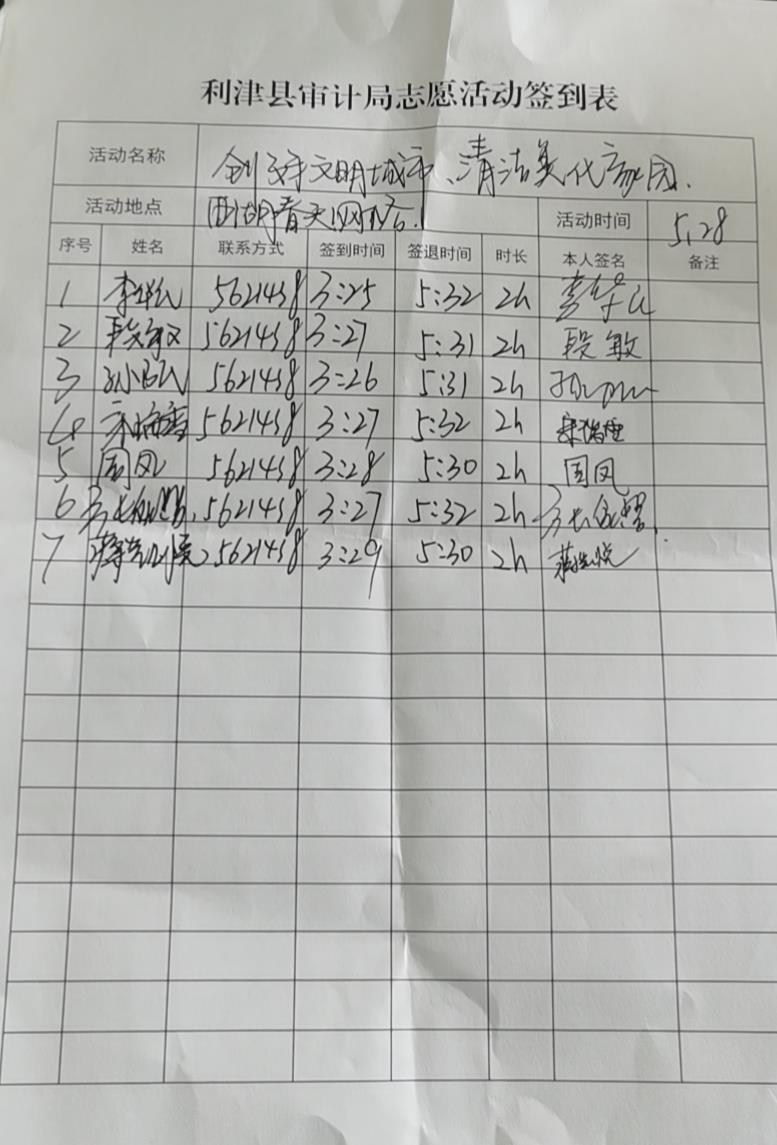 利津县审计局志愿活动签到表
活动名称 创建文明城市、清洁美化家园.
活动地点 西湖春天网格. 活动时间 5.28
序号 姓名 联系方式 签到时间 签退时间 时长 本人签名 备注
1 5621438 3:25 5:32 2h
2 段敏 5621438 3:27 5:31 2h 段敏
3 5621438 3:26 5:31 2h
4 5621438 3:27 5:32 2h
5 国凤 5621438 3:28 5:30 2h 国凤
6 5621438 3:27 5:32 2h
7 5621438 3:29 5:30 2h